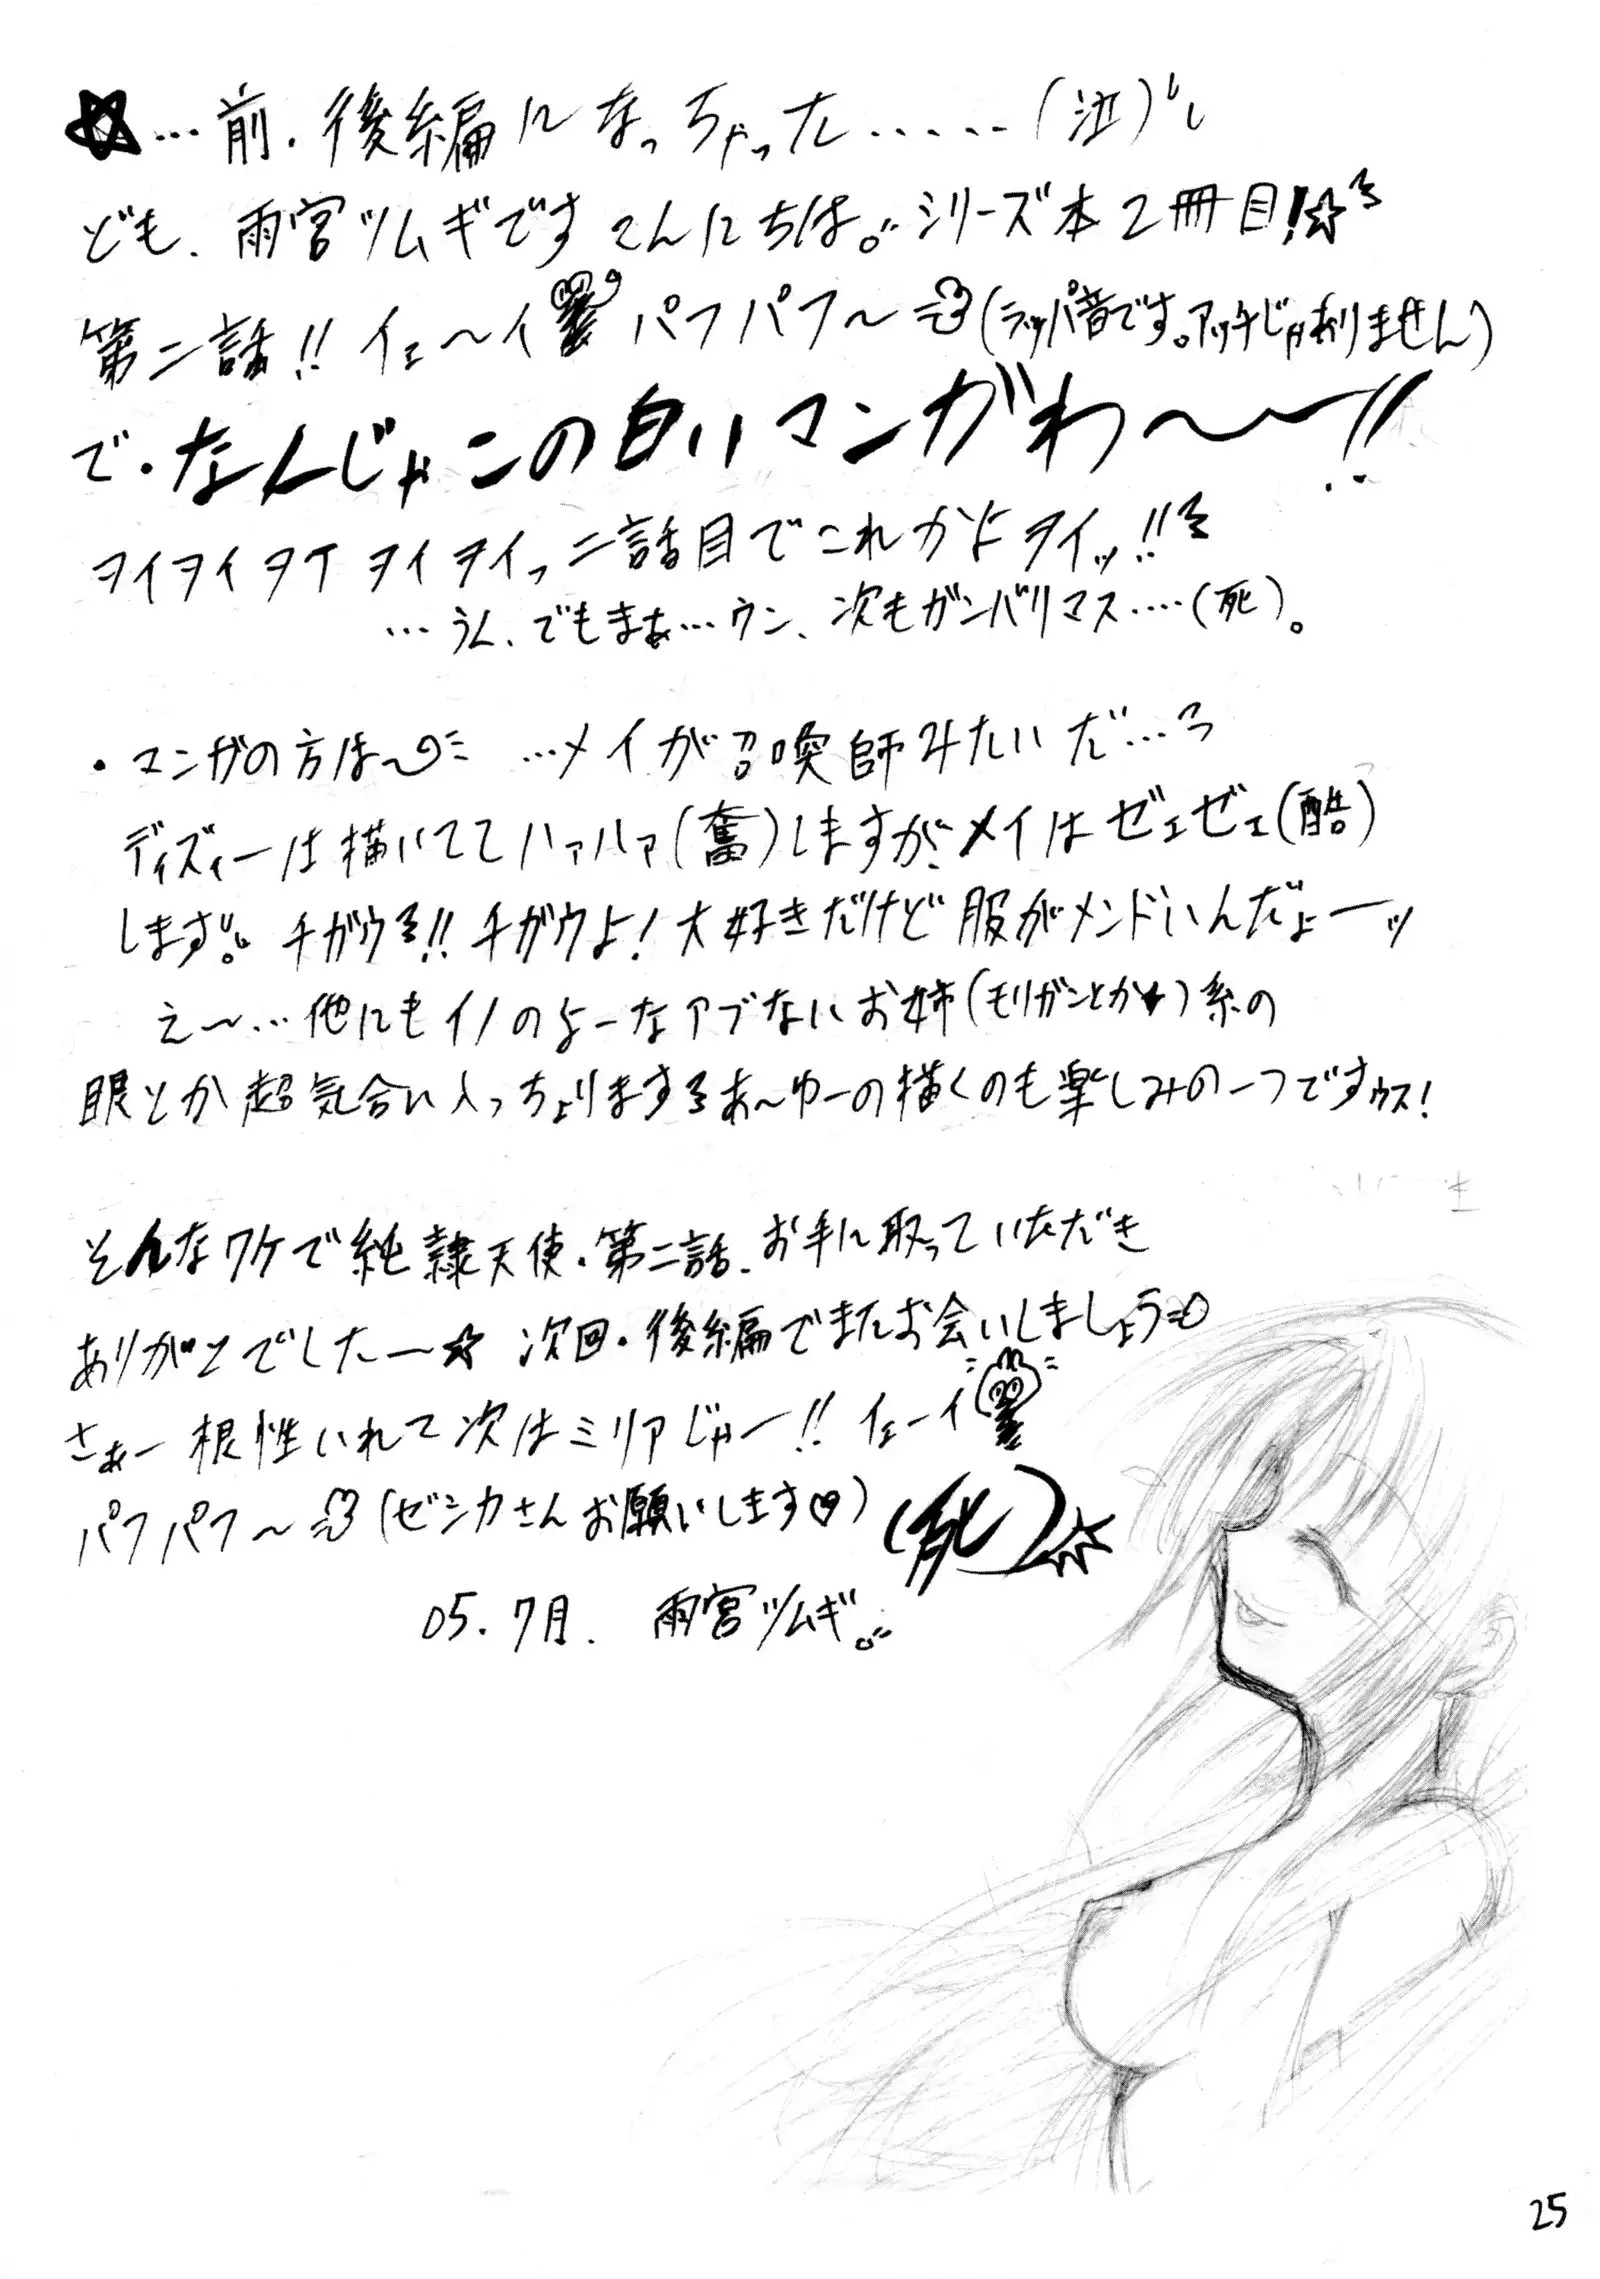 …前・後編になっちゃった……(泣)
ども、雨宮ツムギですこんにちは。シリーズ本2冊目!☆
第二話!!イェ〜イ パフパフ〜(ラッパ音です。アッチじゃありません)
で・なんじゃこの白いマンガわ〜〜!!
ヲイヲイヲイヲイヲイっ二話目でこれかよヲイッ!!
…うん、でもまぁ…ウン、次もガンバリマス…(死)。
・マンガの方は〜 …メイが召喚師みたいだ…
ディズィーは描いててハァハァ(奮)しますが、メイはゼェゼェ(酷)
します。チガウ!!チガウよ!大好きだけど服がメンドいんだよーッ
え〜…他にもイノのよーなアブないお姉(モリガンとか★)系の
眼とか超気合い入っちょりますあ〜ゆーの描くのも楽しみの一つですウス!
そんなワケで純隷天使・第二話、お手に取っていただき
ありがとでしたー☆ 次回・後編でまたお会いしましょう
さぁー根性いれて次はミリアじゃー!!イェーイ
パフパフ〜(ゼシカさんお願いします♡)(死)
05.7月. 雨宮ツムギ。
25